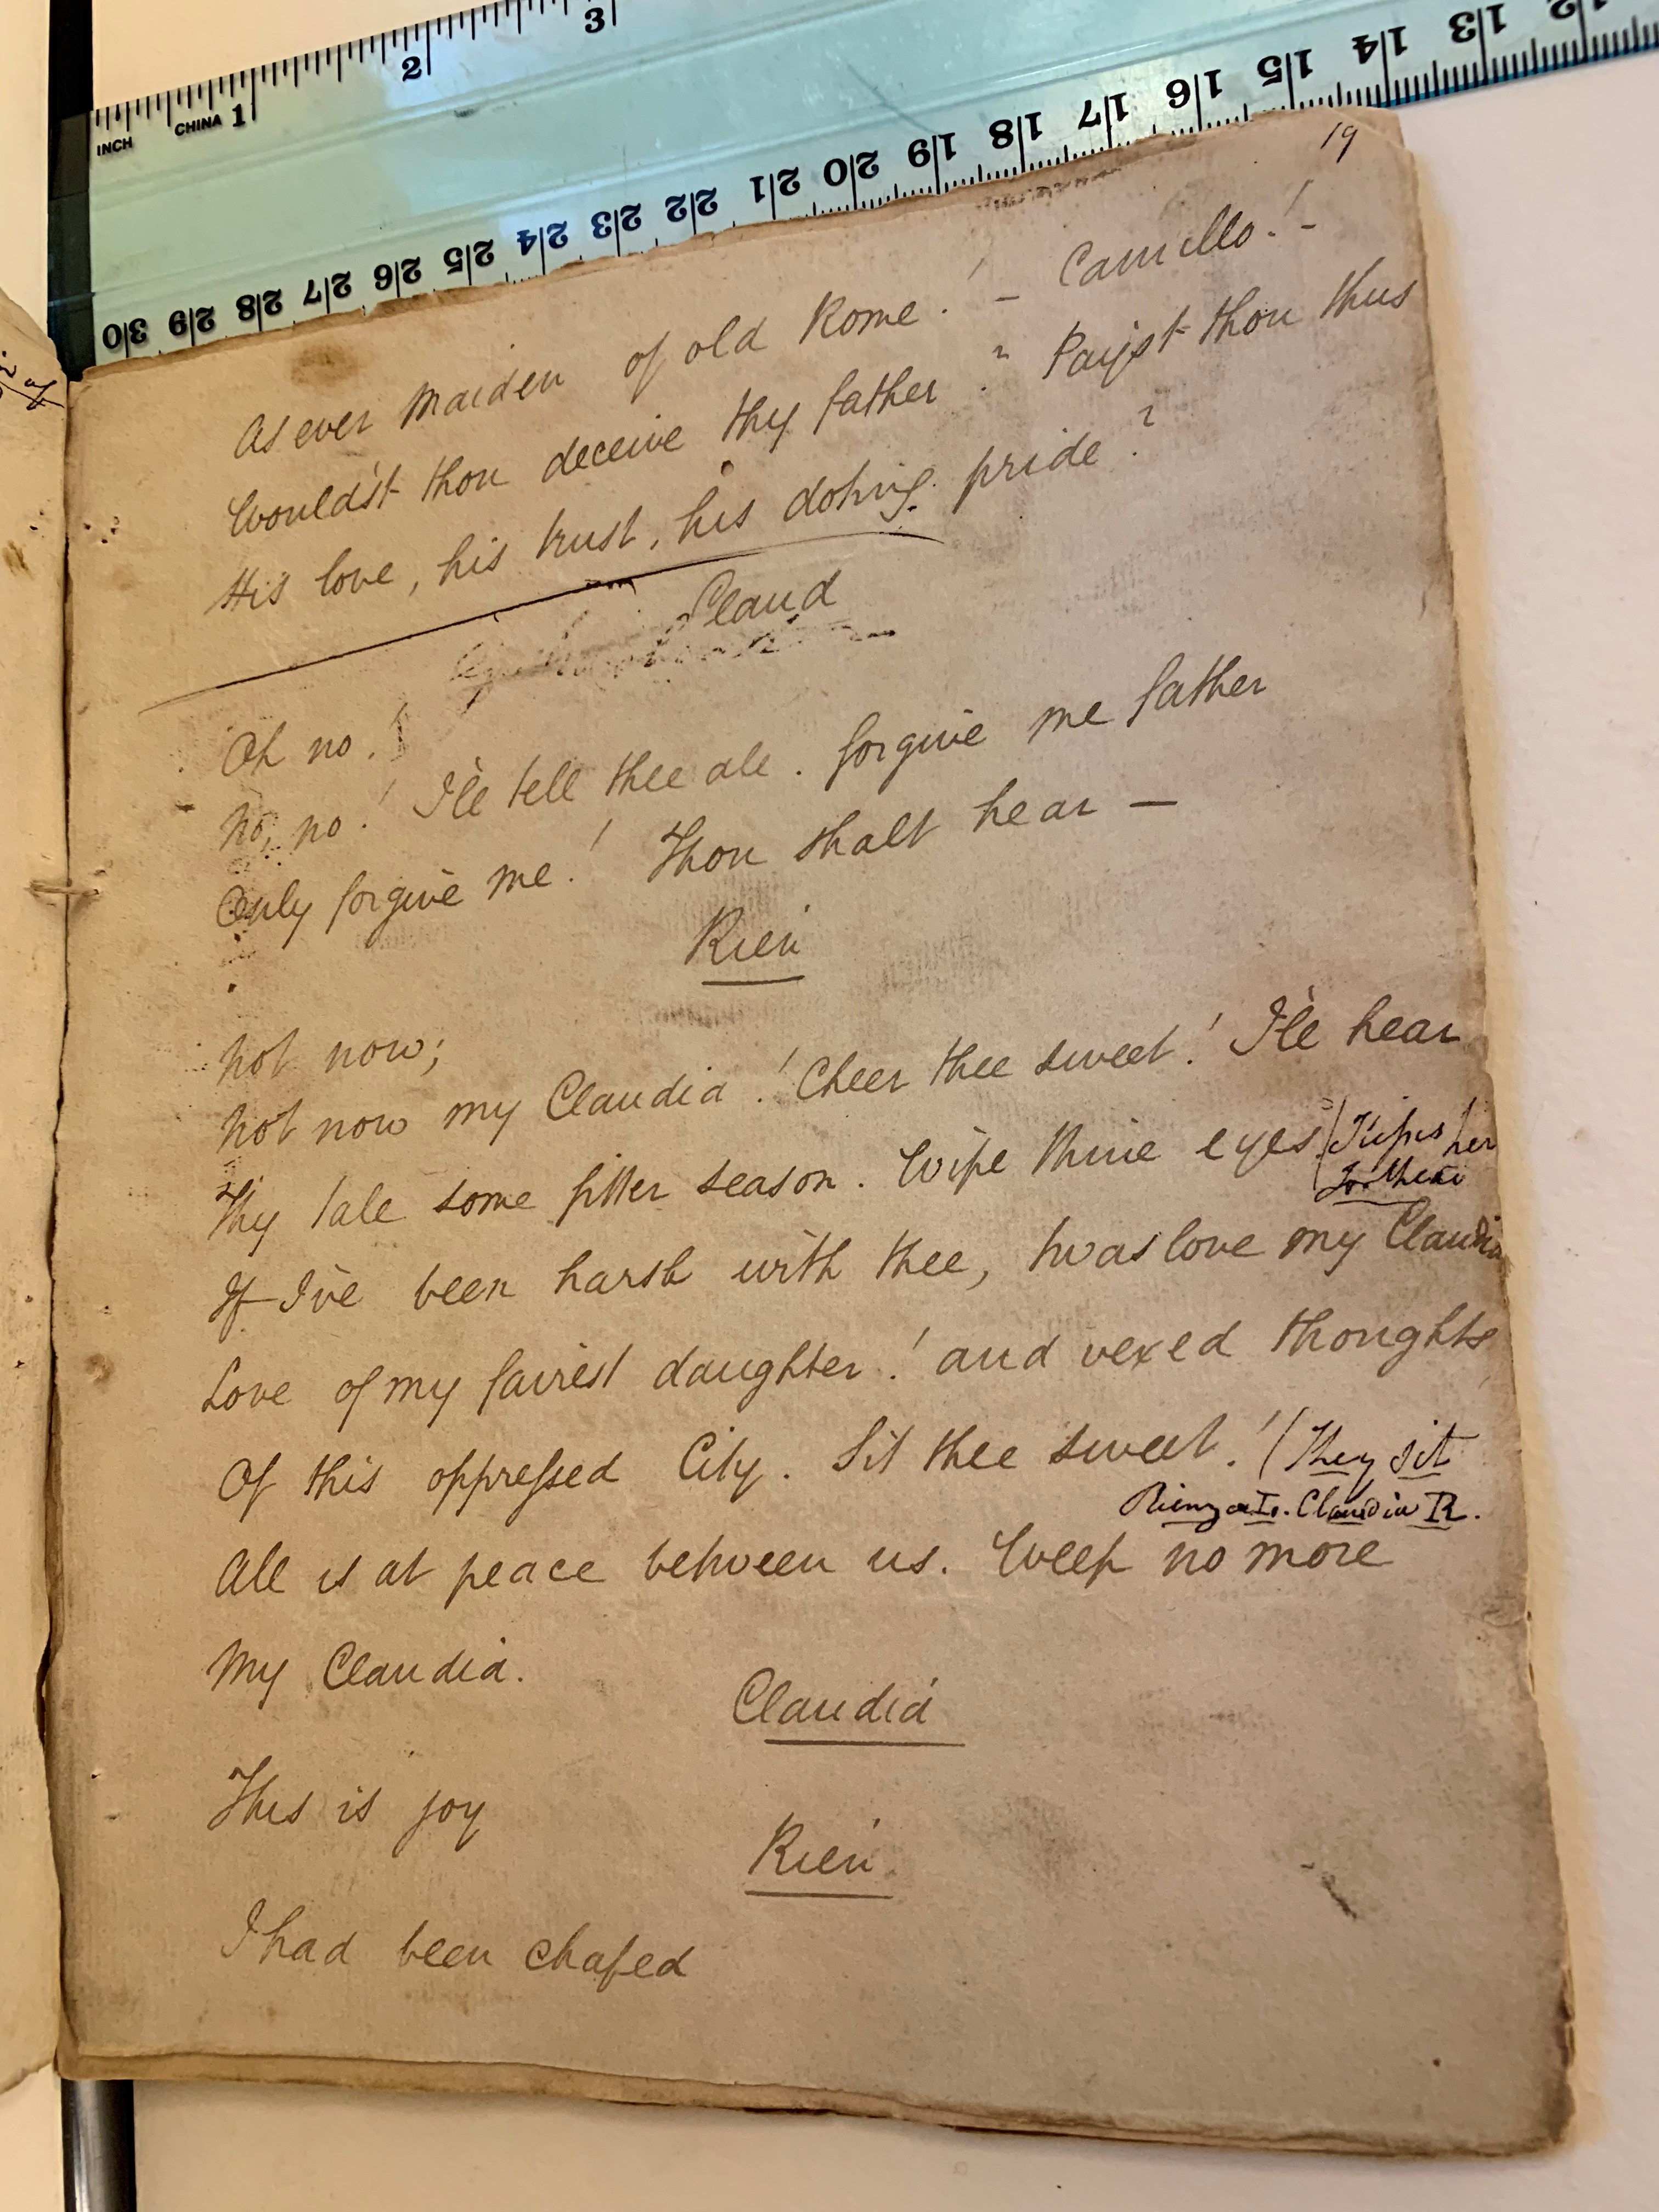 INCH CHINA 1 2 3
30 29 28 27 26 25 24 23 22 21 20 19 18 17 16 15 14 13 12
19
As ever maiden of old Rome! – Camillo! –
Would'st thou deceive thy father? Pay'st thou thus
His love, his trust, his doting pride?
Claud
Oh no!
No, no! I'le tell thee all. forgive me father
Only forgive me! Thou shalt hear —
Rien
Not now;
Not now my Claudia! Cheer thee sweet! I'le hear
Thy tale some fitter season. Wipe thine eyes. (Kisses her
forehead
If I've been harsh with thee, twas love my Claudia
Love of my fairest daughter! and vexed thoughts
Of this oppressed City. Sit thee sweet! (They sit
Rienzi L. Claudia R.
All is at peace between us. Weep no more
My Claudia.
Claudia
This is joy
Rien.
I had been chafed